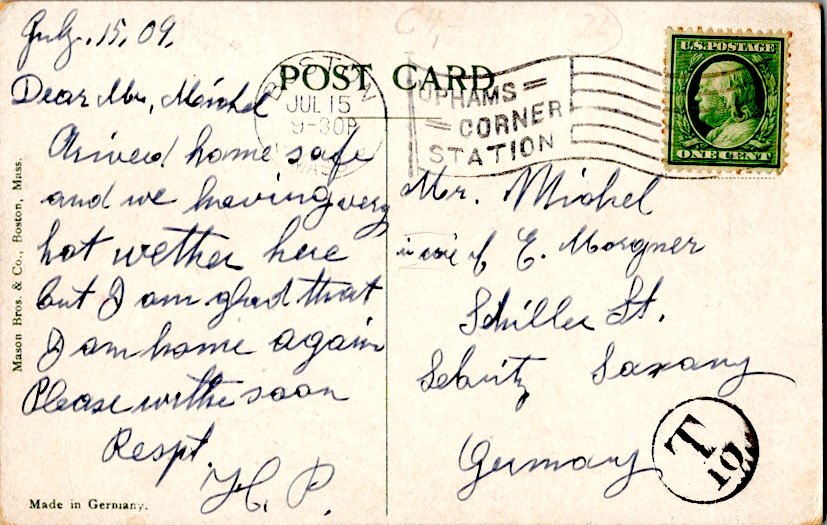 July. 15, 09.
POST CARD
BOSTON
JUL 15
9-30P
MASS
UPHAMS
CORNER
STATION
U.S. POSTAGE
ONE CENT
Dear Mr, Michel
Arived home safe
and we having very
hot wether here
but I am glad that
I am home again
Please writhe soon
Respt.
H. P.
Mr. Michel
in care of E. Morgner
Schiller St.
Sebnitz Saxany
Germany
T
10
Mason Bros. & Co., Boston, Mass.
Made in Germany.